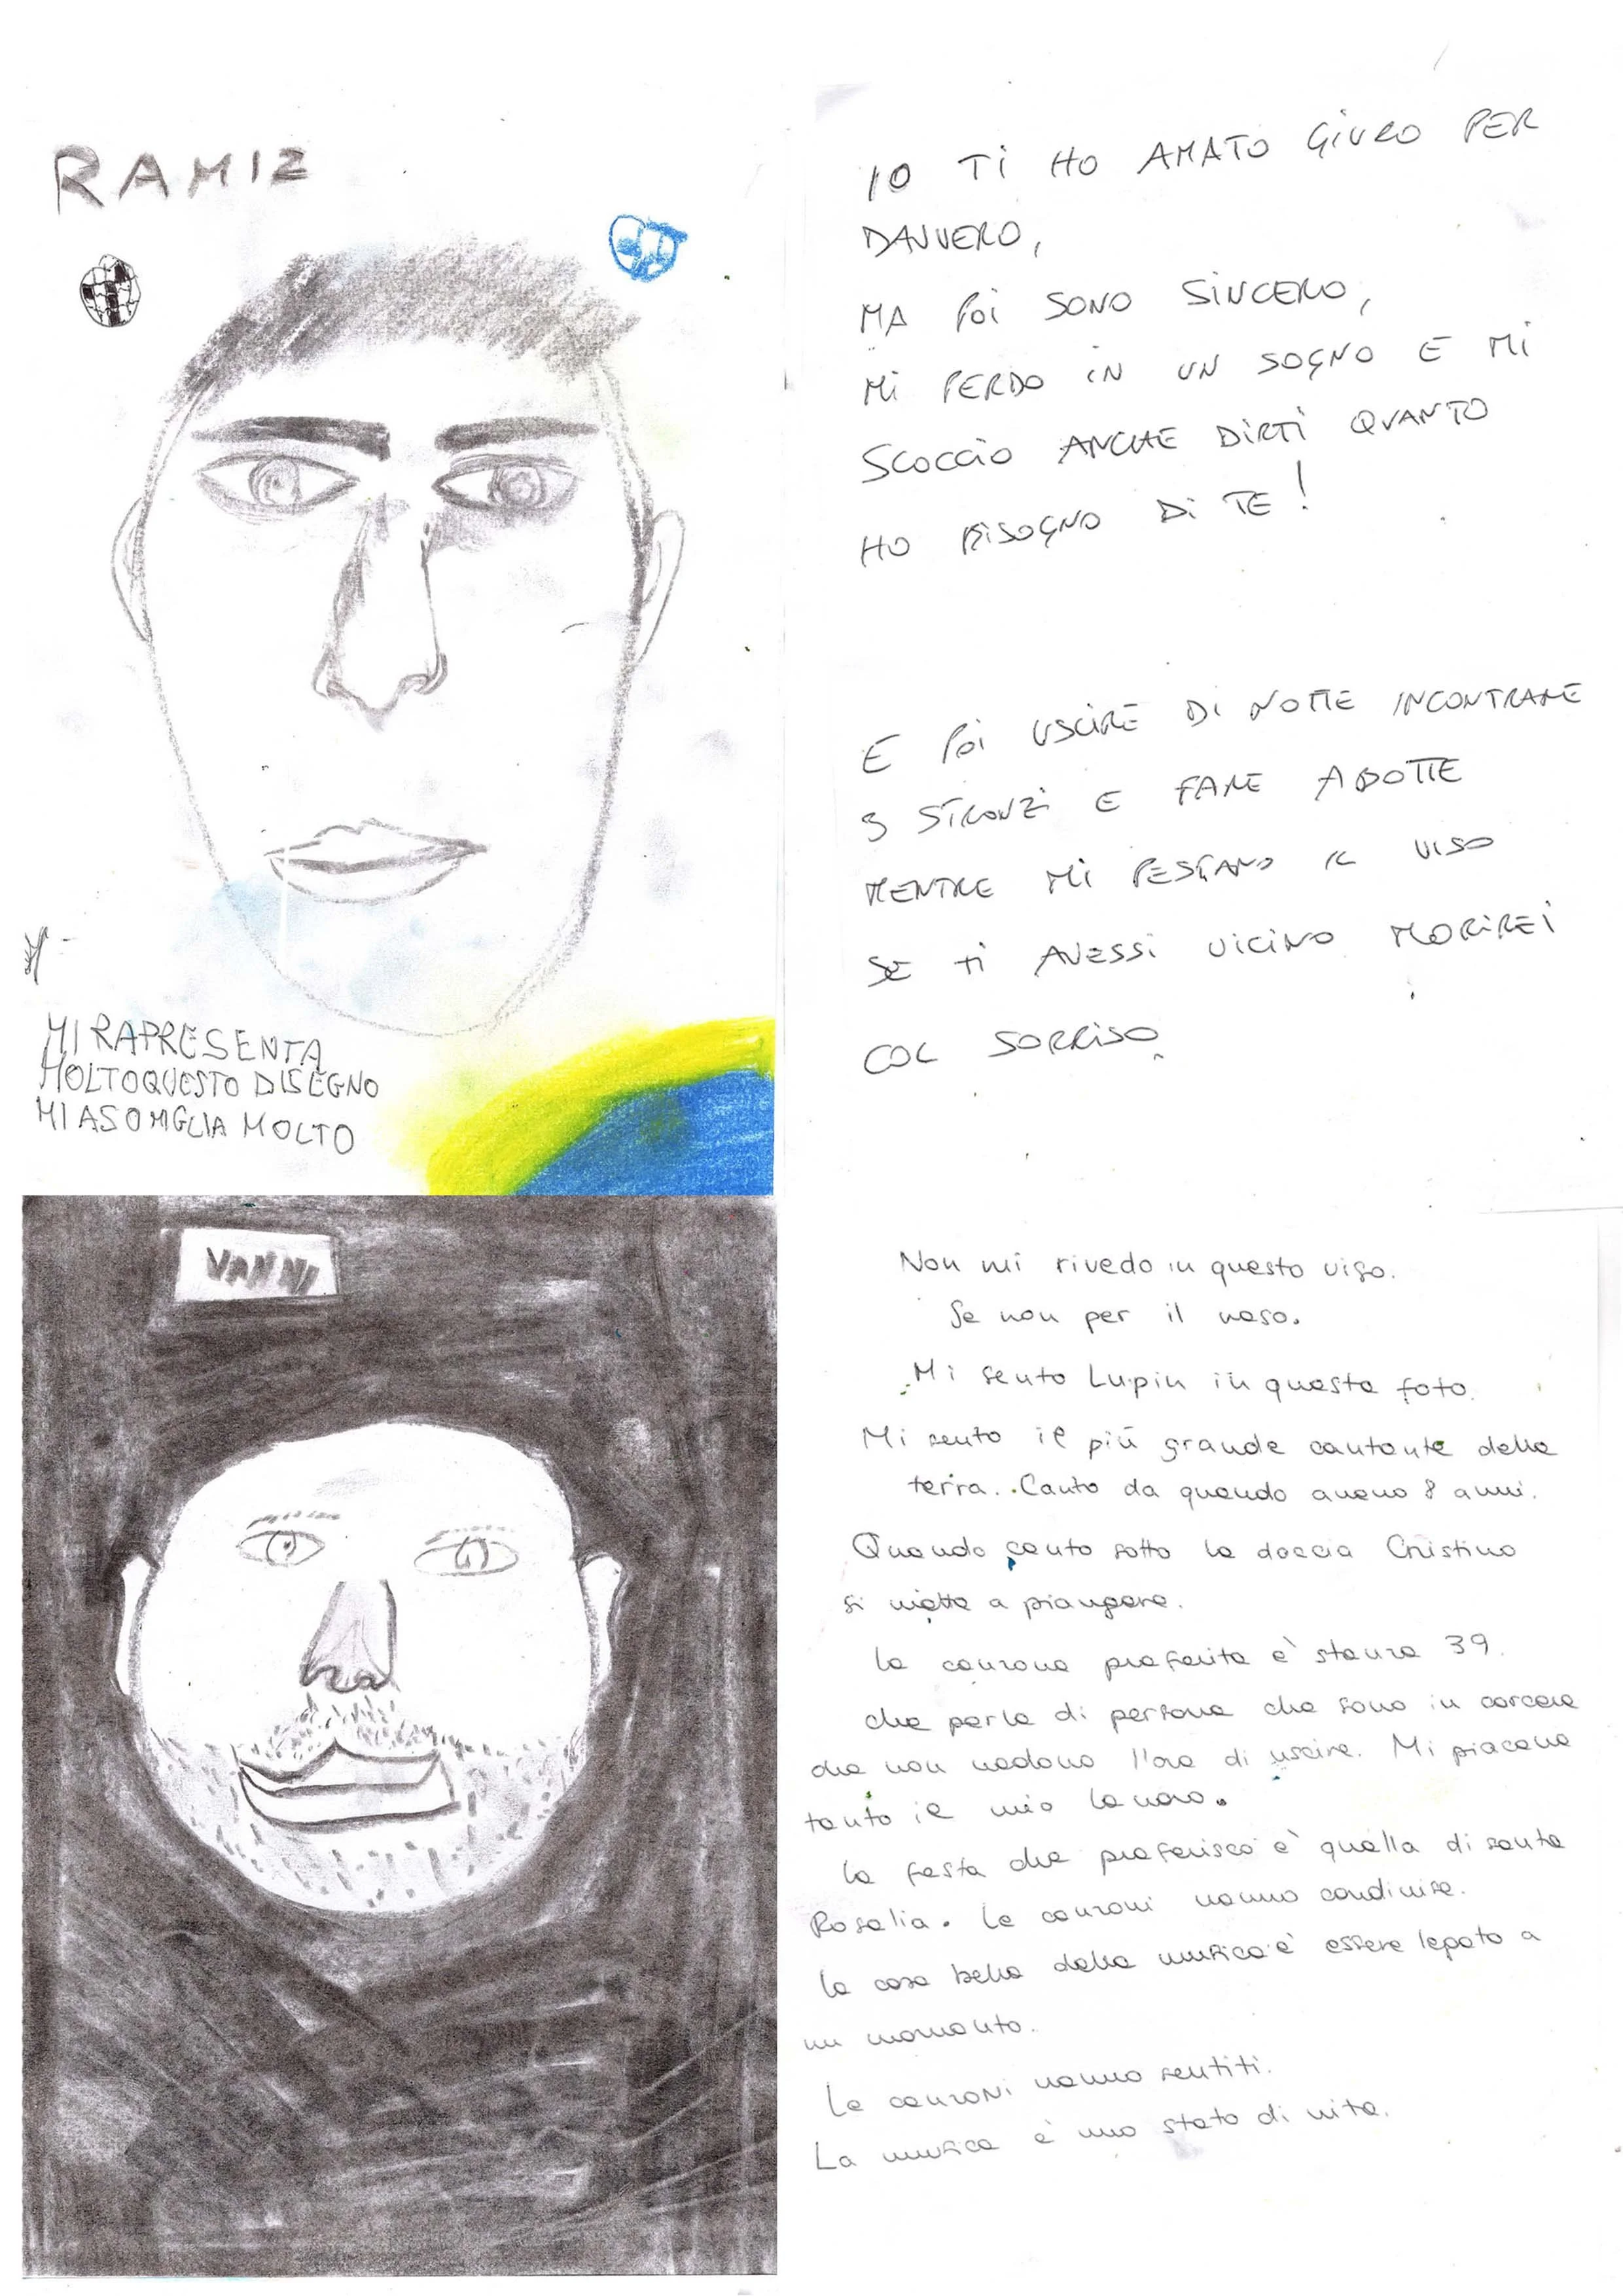 RAMIZ
MI RAPRESENTA
MOLTO QUESTO DISEGNO
MI ASOMIGLIA MOLTO
IO TI HO AMATO GIURO PER
DAVVERO,
MA POI SONO SINCERO,
MI PERDO IN UN SOGNO E MI
SCOCCIO ANCHE DIRTI QUANTO
HO BISOGNO DI TE!
E POI USCIRE DI NOTTE INCONTRARE
3 STRONZI E FARE A BOTTE
MENTRE MI PESTANO IL VISO
SE TI AVESSI VICINO MORIREI
COL SORRISO
VANNI
Non mi rivedo in questo viso.
Se non per il naso.
Mi sento Lupin in questa foto.
Mi sento il più grande cantante della
terra. Canto da quando avevo 8 anni.
Quando canto sotto la doccia Cristino
si mette a piangere.
La canzone preferita è stanza 39.
che parla di persone che sono in carcere
che non vedono l'ora di uscire. Mi piaceva
tanto il mio lavoro.
La festa che preferisco è quella di santa
Rosalia. Le canzoni vanno condivise.
La cosa bella della musica è essere legato a
un momento.
Le canzoni vanno sentiti.
La musica è uno stato di vita.